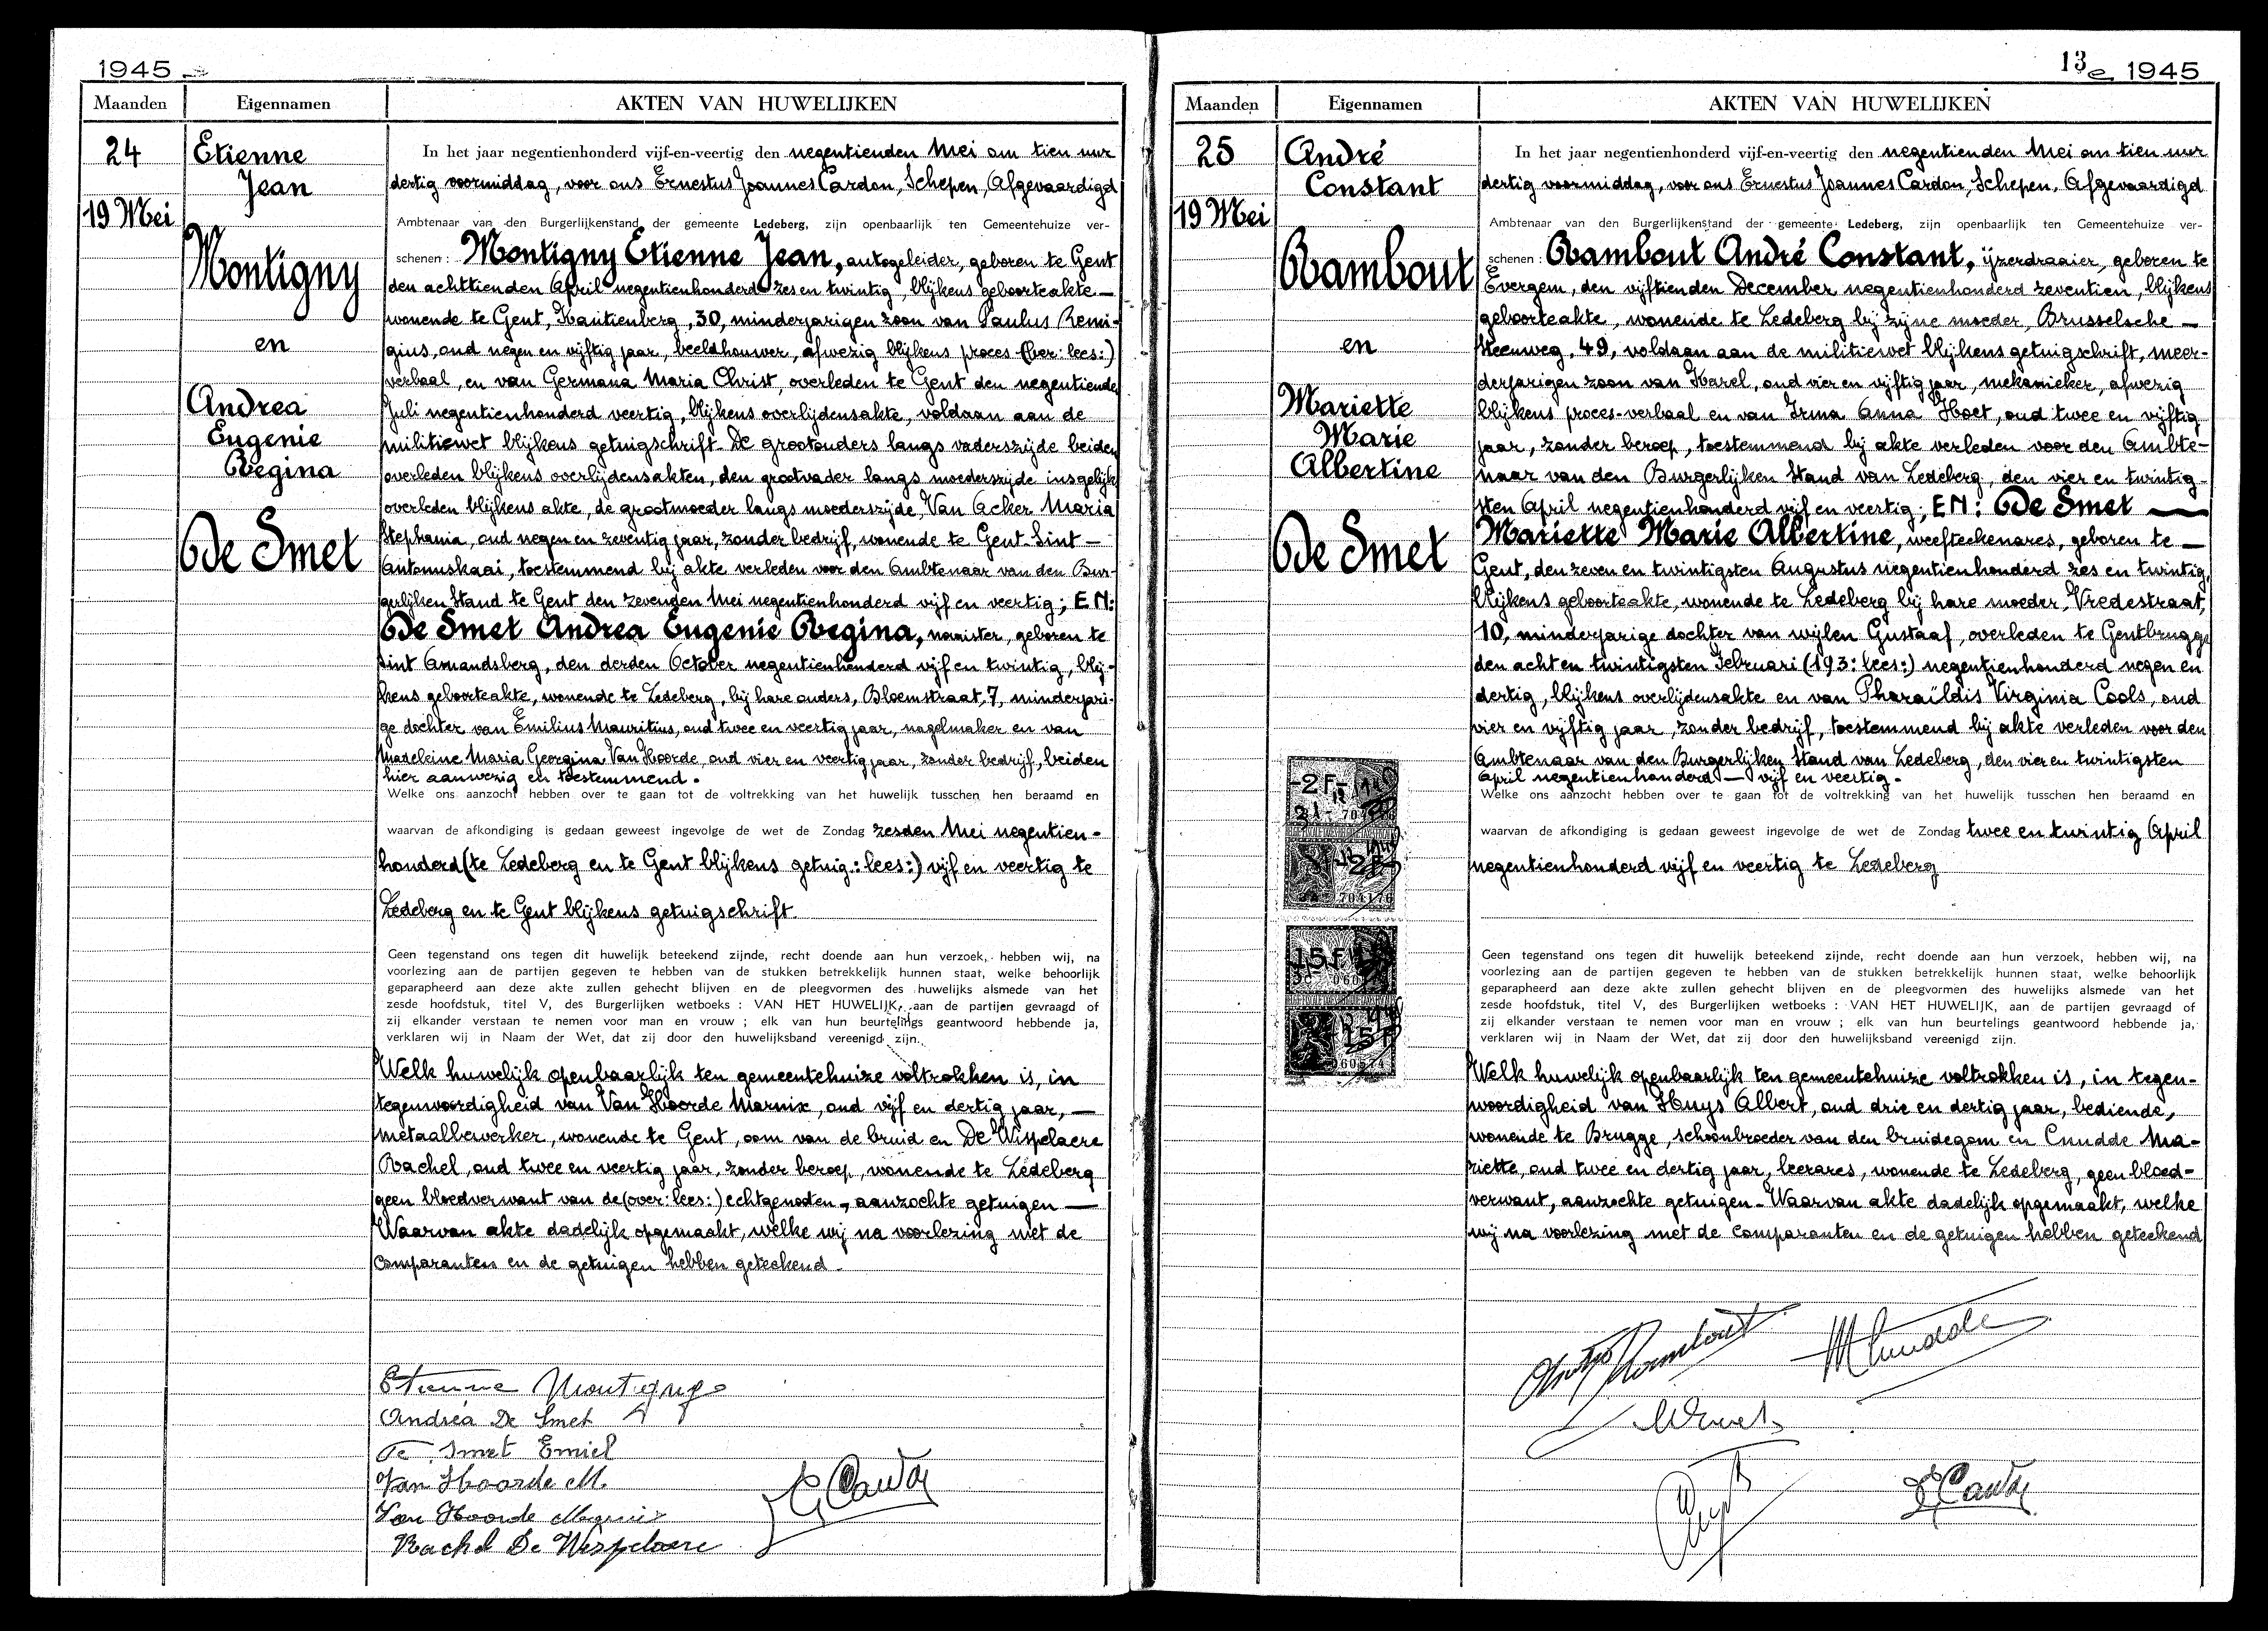 1945
Maanden
Eigennamen
AKTEN VAN HUWELIJKEN
24
19 Mei
Etienne
Jean
Montigny
en
Andrea
Eugenie
Regina
De Smet
In het jaar negentienhonderd vijf-en-veertig den negentienden Mei om tien uur
dertig voormiddag, voor ons Ernestus Joannes Cardon, Schepen, Afgevaardigd
Ambtenaar van den Burgerlijkenstand der gemeente Ledeberg, zijn openbaarlijk ten Gemeentehuize ver-
schenen: Montigny Etienne Jean, autogeleider, geboren te Gent
den achttienden April negentienhonderd zes en twintig, blijkens geboorteakte —
wonende te Gent, Kantienberg, 30, minderjarigen zoon van Paulus Remi-
gius, oud negen en vijftig jaar, beeldhouwer, afwezig blijkens proces (ber: lees:)
verbaal, en van Germana Maria Christ, overleden te Gent den negentiende
Juli negentienhonderd veertig, blijkens overlijdensakte, voldaan aan de
militiewet blijkens getuigschrift. De grootouders langs vaderszijde beiden
overleden blijkens overlijdensakten, den grootvader langs moederszijde insgelijks
overleden blijkens akte, de grootmoeder langs moederszijde, Van Acker Maria
Stephania, oud negen en zeventig jaar, zonder bedrijf, wonende te Gent Sint —
Antoniuskaai, toestemmend bij akte verleden voor den Ambtenaar van den Bur-
gerlijken Stand te Gent den zevenden Mei negentienhonderd vijf en veertig; EN:
De Smet Andrea Eugenie Regina, naaister, geboren te
Sint Amandsberg, den derden October negentienhonderd vijf en twintig, blij-
kens geboorteakte, wonende te Ledeberg, bij hare ouders, Bloemstraat, 7, minderjari-
ge dochter van Emilius Mauritius, oud twee en veertig jaar, nagelmaker en van
Madeleine Maria Georgina Van Hoorde, oud vier en veertig jaar, zonder bedrijf, beiden
hier aanwezig en toestemmend.
Welke ons aanzocht hebben over te gaan tot de voltrekking van het huwelijk tusschen hen beraamd en
waarvan de afkondiging is gedaan geweest ingevolge de wet de Zondag zesden Mei negentien-
honderd (te Ledeberg en te Gent blijkens getuig.: lees:) vijf en veertig te
Ledeberg en te Gent blijkens getuigschrift.
Geen tegenstand ons tegen dit huwelijk beteekend zijnde, recht doende aan hun verzoek, hebben wij, na
voorlezing aan de partijen gegeven te hebben van de stukken betrekkelijk hunnen staat, welke behoorlijk
geparapheerd aan deze akte zullen gehecht blijven en de pleegvormen des huwelijks alsmede van het
zesde hoofdstuk, titel V, des Burgerlijken wetboeks : VAN HET HUWELIJK, aan de partijen gevraagd of
zij elkander verstaan te nemen voor man en vrouw ; elk van hun beurtelings geantwoord hebbende ja,
verklaren wij in Naam der Wet, dat zij door den huwelijksband vereenigd zijn.
Welk huwelijk openbaarlijk ten gemeentehuize voltrokken is, in
tegenwoordigheid van Van Hoorde Marnix, oud vijf en dertig jaar, —
metaalbewerker, wonende te Gent, oom van de bruid en De Wispelaere
Rachel, oud twee en veertig jaar, zonder beroep, wonende te Ledeberg
geen bloedverwant van de (over: lees:) echtgenoten, aanzochte getuigen —
Waarvan akte dadelijk opgemaakt, welke wij na voorlezing met de
comparanten en de getuigen hebben geteekend.
Etienne Montigny
Andréa De Smet
De Smet Emiel
Van Hoorde M.
Van Hoorde Marnix
Rachel De Wispelaere
13e 1945
Maanden
Eigennamen
AKTEN VAN HUWELIJKEN
25
19 Mei
André
Constant
Rambout
en
Mariette
Marie
Albertine
De Smet
In het jaar negentienhonderd vijf-en-veertig den negentienden Mei om tien uur
dertig voormiddag, voor ons Ernestus Joannes Cardon, Schepen, Afgevaardigd
Ambtenaar van den Burgerlijkenstand der gemeente Ledeberg, zijn openbaarlijk ten Gemeentehuize ver-
schenen: Rambout André Constant, ijzerdraaier, geboren te
Evergem, den vijftienden December negentienhonderd zeventien, blijkens
geboorteakte, wonende te Ledeberg bij zijne moeder, Brusselsche —
steenweg, 49, voldaan aan de militiewet blijkens getuigschrift, meer-
derjarigen zoon van Karel, oud vier en vijftig jaar, mekanieker, afwezig
blijkens proces-verbaal en van Irma Anna Hoet, oud twee en vijftig
jaar, zonder beroep, toestemmend bij akte verleden voor den Ambte-
naar van den Burgerlijken Stand van Ledeberg, den vier en twintig-
sten April negentienhonderd vijf en veertig; EN: De Smet —
Mariette Marie Albertine, weefteekenares, geboren te —
Gent, den zeven en twintigsten Augustus negentienhonderd zes en twintig,
blijkens geboorteakte, wonende te Ledeberg bij hare moeder, Vredestraat,
10, minderjarige dochter van wijlen Gustaaf, overleden te Gentbrugge
den acht en twintigsten Februari (193: lees:) negentienhonderd negen en
dertig, blijkens overlijdensakte en van Pharaïldis Virginia Cools, oud
vier en vijftig jaar, zonder bedrijf, toestemmend bij akte verleden voor den
Ambtenaar van den Burgerlijken Stand van Ledeberg, den vier en twintigsten
April negentienhonderd — vijf en veertig.
Welke ons aanzocht hebben over te gaan tot de voltrekking van het huwelijk tusschen hen beraamd en
waarvan de afkondiging is gedaan geweest ingevolge de wet de Zondag twee en twintig April
negentienhonderd vijf en veertig te Ledeberg
Geen tegenstand ons tegen dit huwelijk beteekend zijnde, recht doende aan hun verzoek, hebben wij, na
voorlezing aan de partijen gegeven te hebben van de stukken betrekkelijk hunnen staat, welke behoorlijk
geparapheerd aan deze akte zullen gehecht blijven en de pleegvormen des huwelijks alsmede van het
zesde hoofdstuk, titel V, des Burgerlijken wetboeks : VAN HET HUWELIJK, aan de partijen gevraagd of
zij elkander verstaan te nemen voor man en vrouw ; elk van hun beurtelings geantwoord hebbende ja,
verklaren wij in Naam der Wet, dat zij door den huwelijksband vereenigd zijn.
Welk huwelijk openbaarlijk ten gemeentehuize voltrokken is, in tegen-
woordigheid van Huys Albert, oud drie en dertig jaar, bediende,
wonende te Brugge, schoonbroeder van den bruidegom en Cnudde Ma-
riette, oud twee en dertig jaar, leerares, wonende te Ledeberg, geen bloed-
verwant, aanzochte getuigen. Waarvan akte dadelijk opgemaakt, welke
wij na voorlezing met de comparanten en de getuigen hebben geteekend